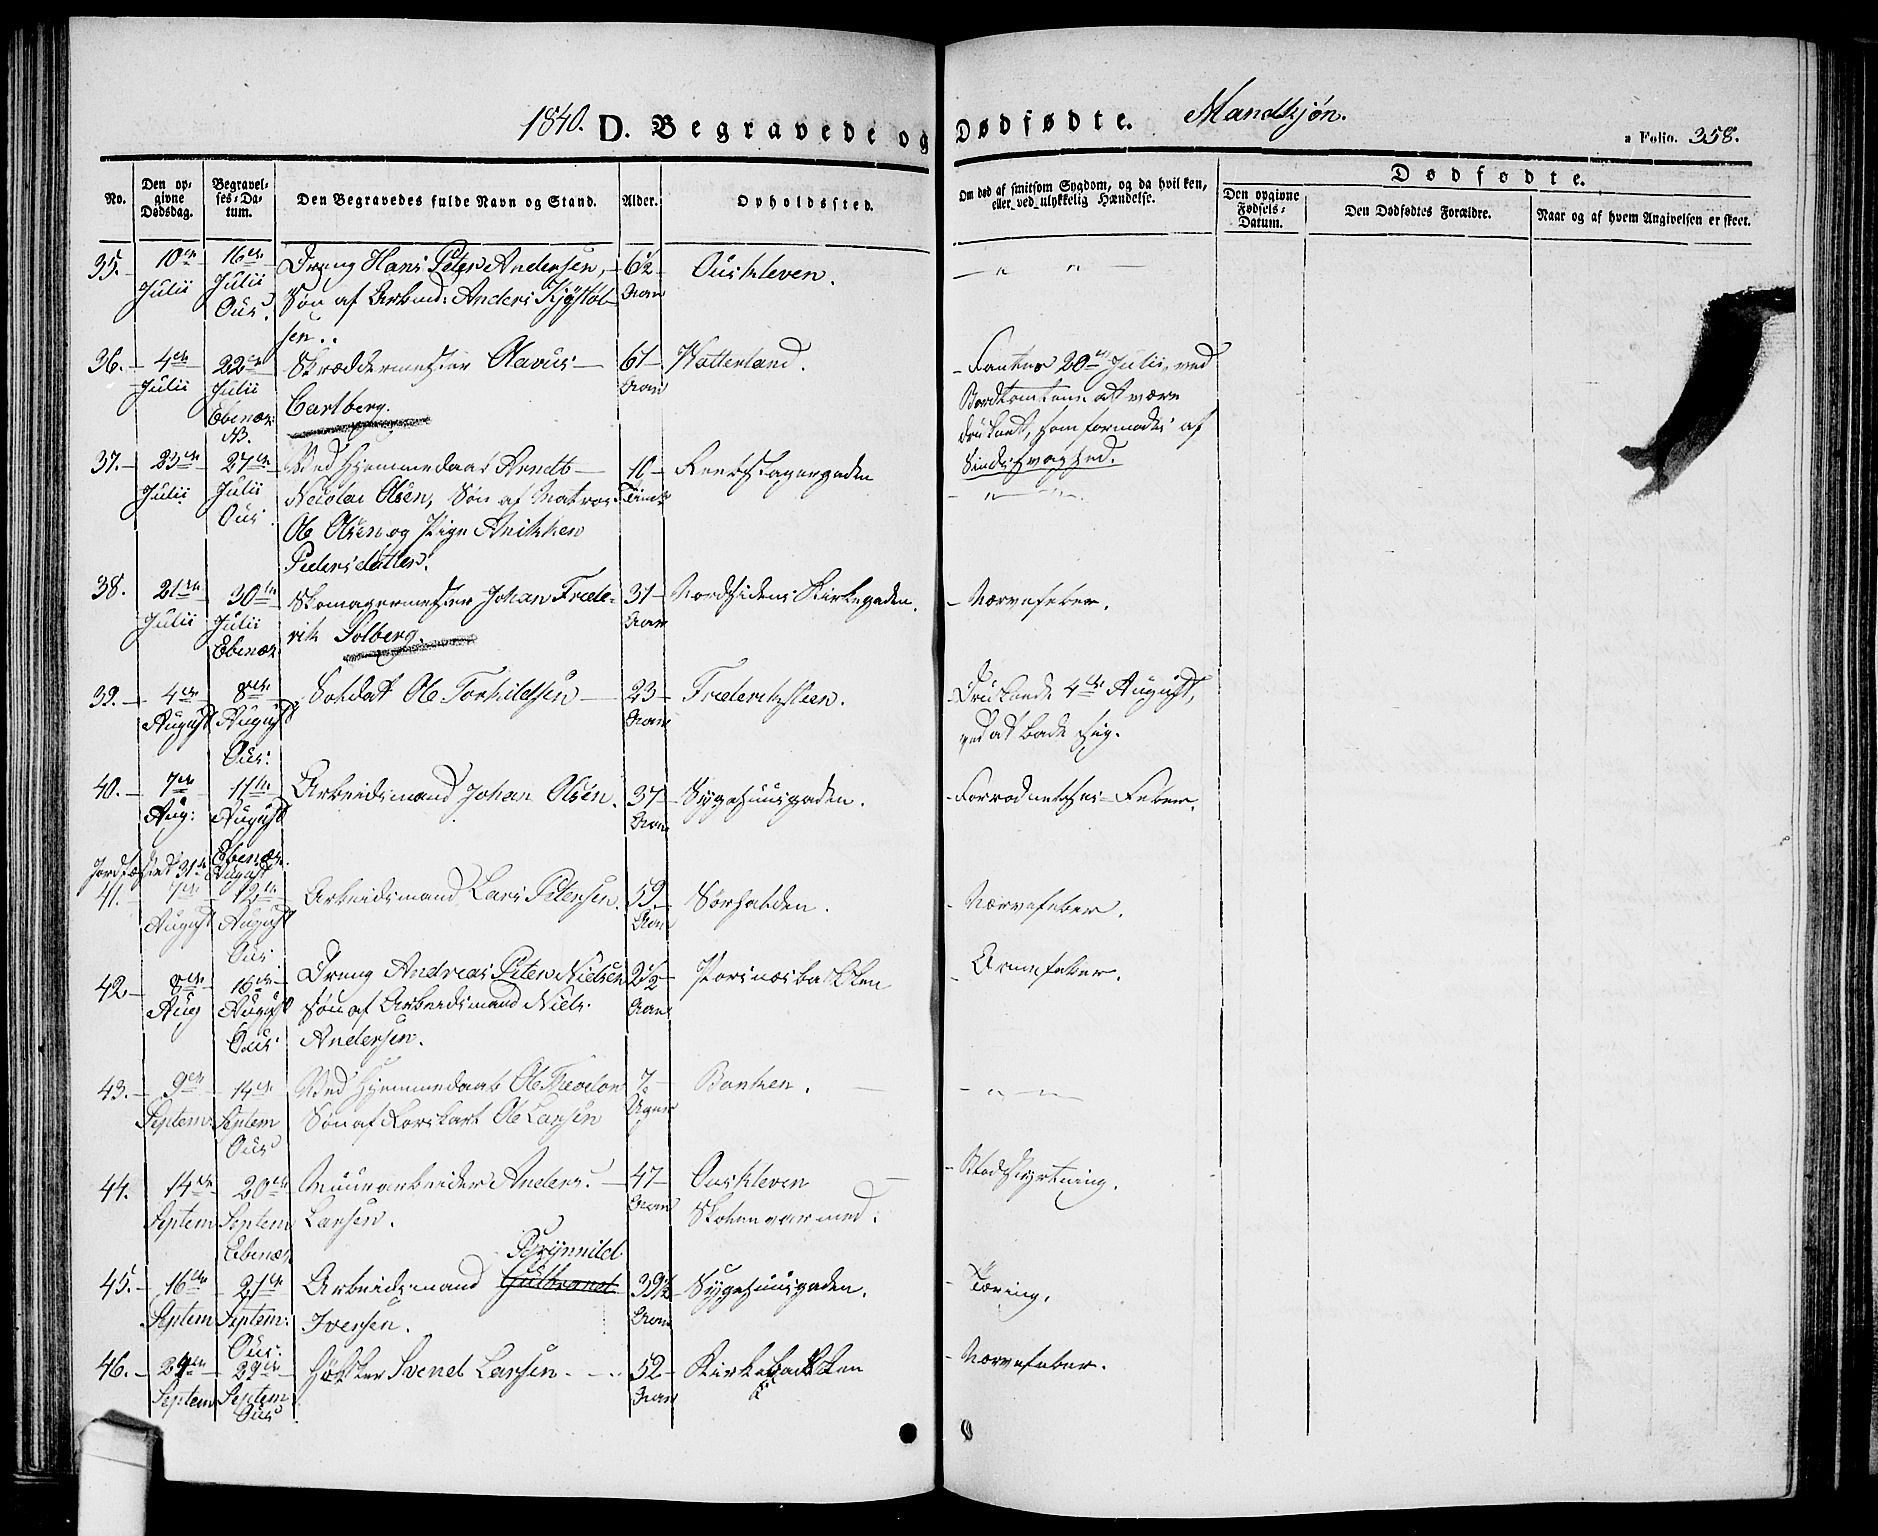 1840. D. Begravede og Dødfødte. Mandkjøn.
a Folio. 358.
No. Den opgivne Dødsdag. Begravelses-Datum. Den Begravedes fulde Navn og Stand. Alder. Opholdssted. Om død af smitsom Sygdom, og da hvilken, eller ved ulykkelig Hændelse. Dødfødte.
Den opgivne Fødsels-Datum. Den Dødfødtes Forældre. Naar og af hvem Angivelsen er skeet.
35. 10de 16de Dreng Hans Peter Andersen, 6½ Ouskleven. — " " —
Julii Julii Søn af Arbmd: Anders Kjøstol-
Ous. sen..
Aar
36. 4de 22de Skræddermester Olavus 61 Watterland. Funden 20de Julii, ved
Julii Julii Carlberg. Aar Bordtomtene at være
Ebenez: druknet, som formodes af
NB. Sindssvaghed.
37. 23de 27de Ved Hjemmedaab Arndt 10 Reebslagergaden — " —
Julii Julii Nicolai Olsen, Søn af Matros Timer
Ous. Ole Olsen og Pige Anikken
Pedersdatter.
38. 21de 30te Skomagermester Johan Frede- 31 Nordsidens Kirkegaden. Nervefeber.
Julii Julii rik Solberg. Aar
Ebenez
39. 4de 8de Soldat Ole Torkildsen 23 Frederikssteen. Druknede 4de August,
August August Aar ved at bade sig.
Ous:
40. 7de 11te Arbeidsmand Johan Olsen. 37 Sygehuusgaden. Forraadnelses-Feber.
Aug: August Aar
Ebenez:
Jordfæstet 31te August
41. 7de 12te Arbeidsmand Lars Petersen. 59 Sørhalden. Nervefeber.
August August Aar
Ous
42 8de 16de Dreng Andreas Peter Nielsen 2½ Porsnesbakken
Aug August Søn af Arbeidsmand Niels Aar
Ous Andersen.
43. 9de 14de Ved Hjemmedaab Ole Theodor 7 Banken. — " —
Septem: Septem Søn af Ole Larsen Uger
Ous
44. 14de 20de Muurarbeider Anders 47 Ouskleven Blodstyrtning.
Septem Septem Larsen. Aar
Ebenez
Brynnild
45. 16de 21de Arbeidsmand Gulbrand 39½ Sygehuusgaden. Tæring.
Septem Septem: Iversen. Aar
Ous:
46. 24de 29de Høker Svend Larsen. 52 Kirkebakken Nervefeber.
Septem Septem Aar
Ous